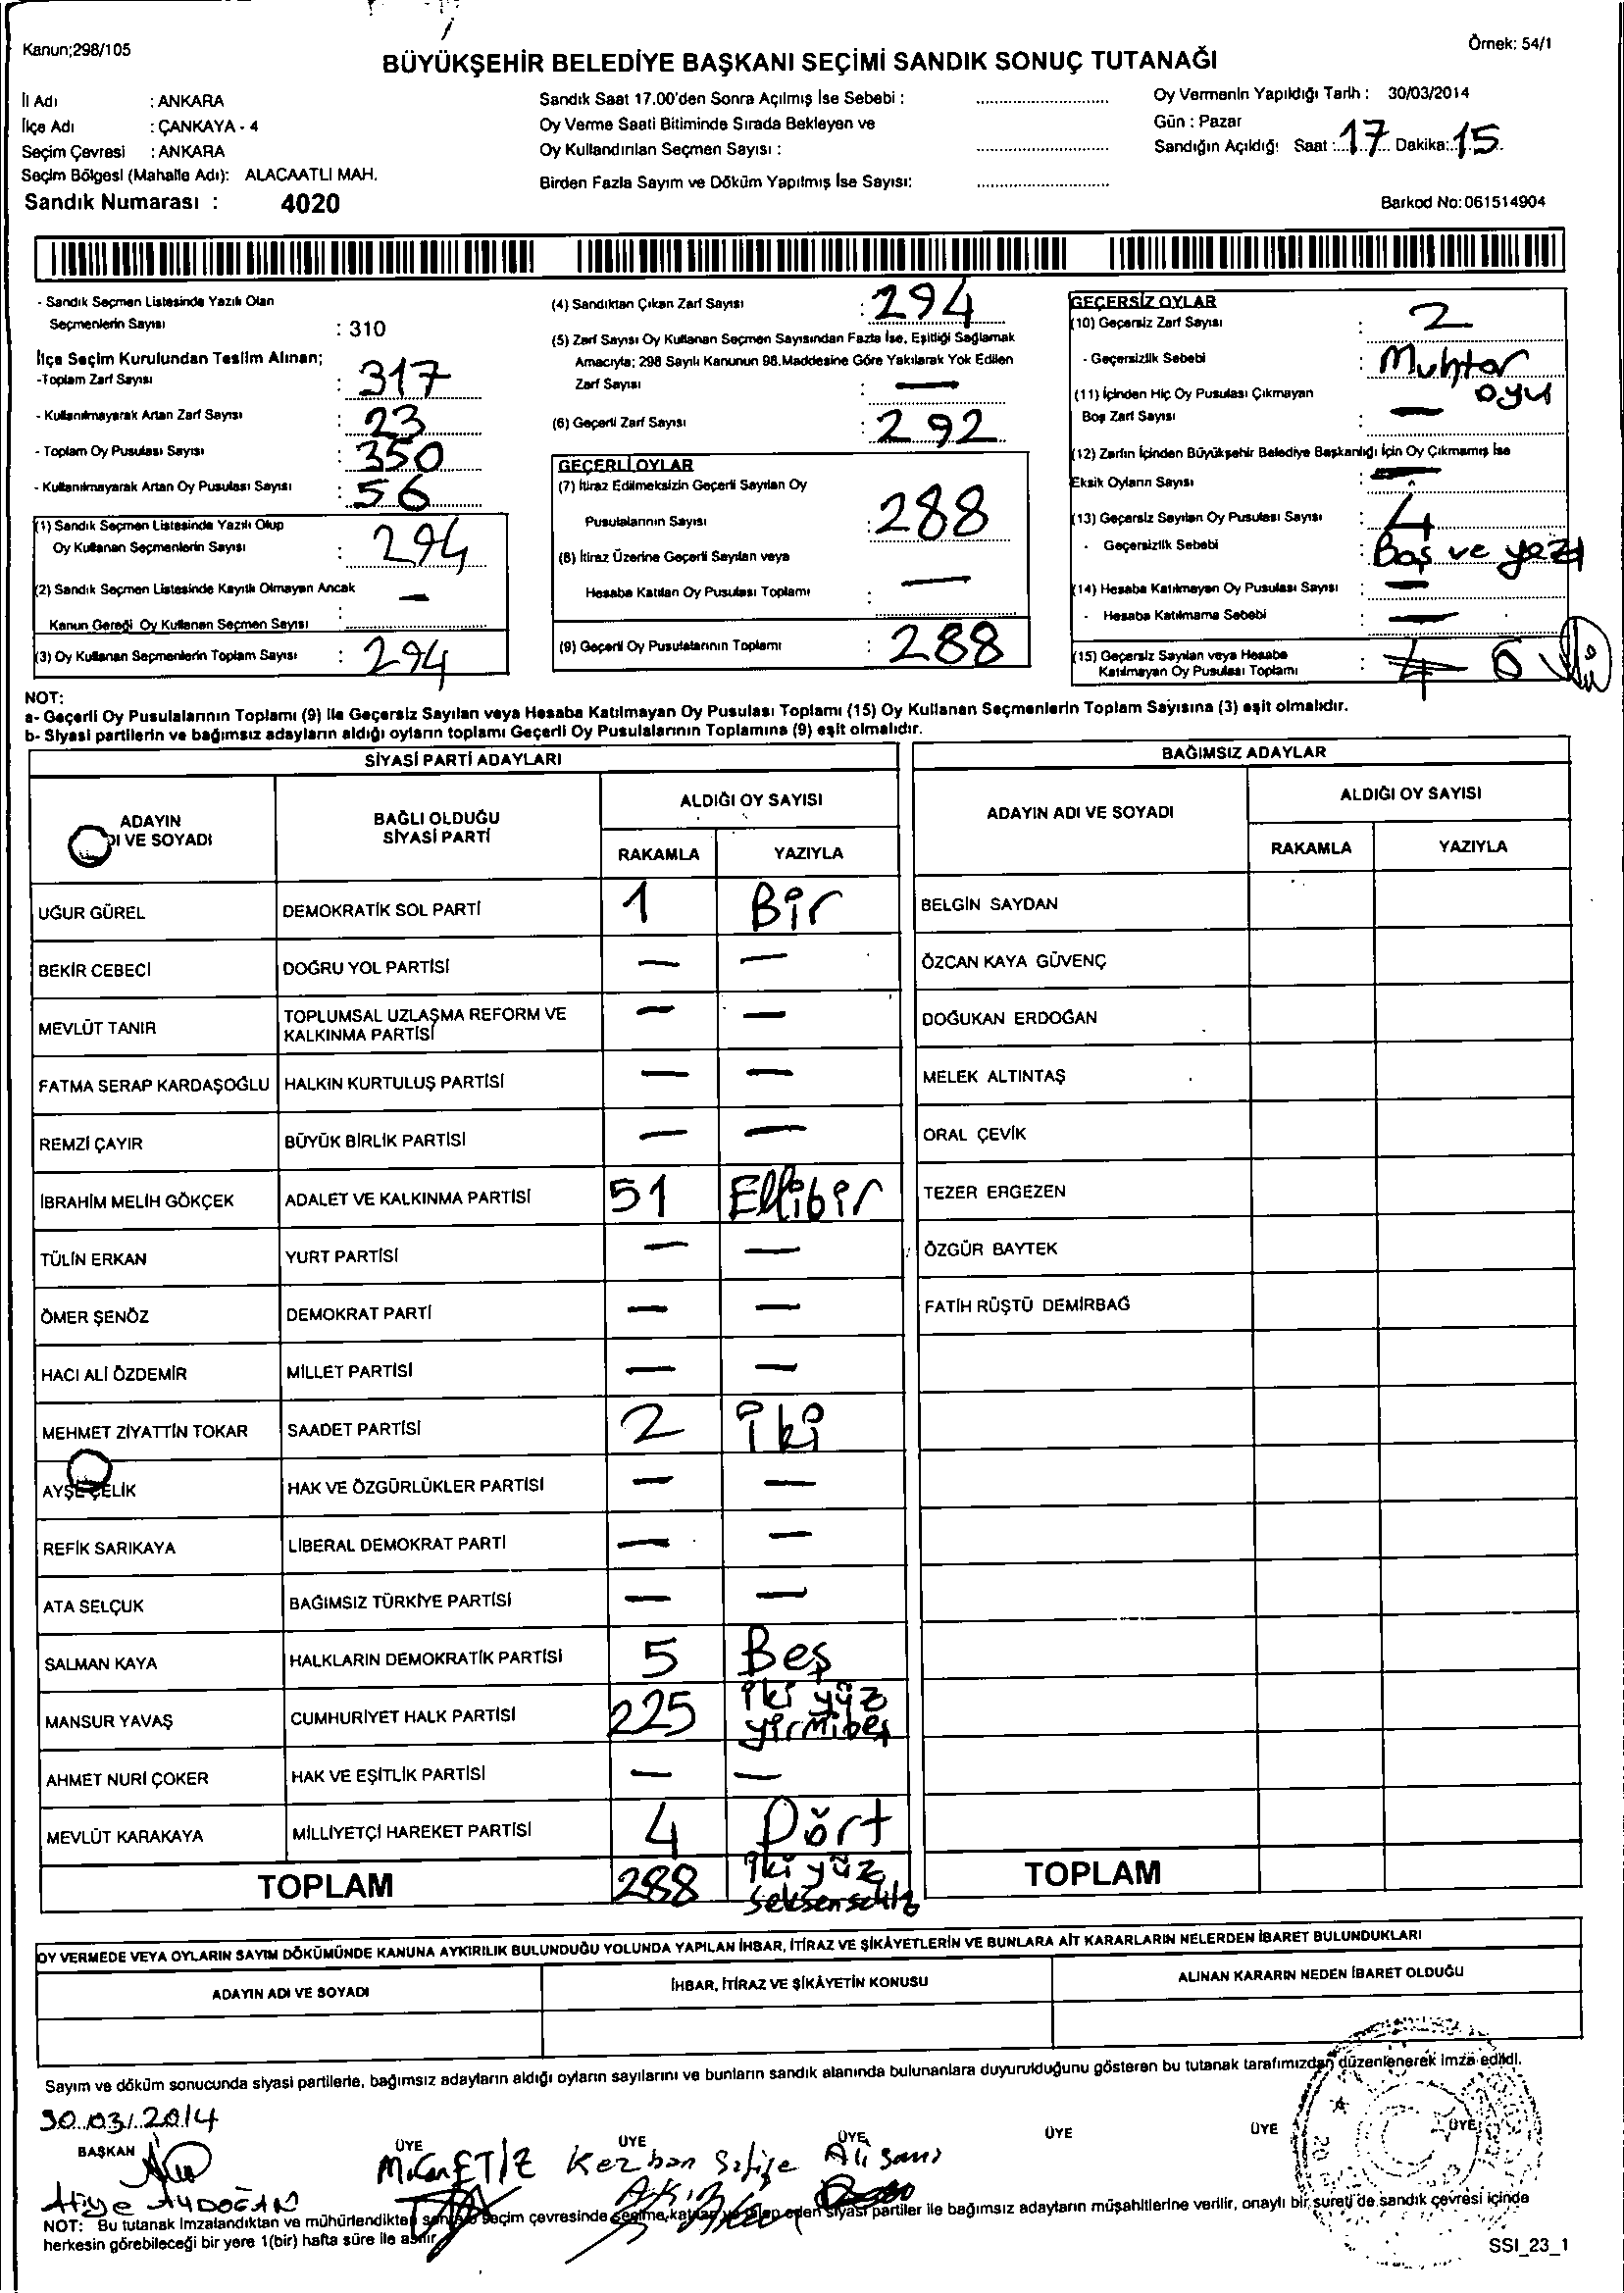 Kanun;298/105
Örnek: 54/1
BÜYÜKŞEHİR BELEDİYE BAŞKANI SEÇİMİ SANDIK SONUÇ TUTANAĞI
İl Adı : ANKARA
İlçe Adı : ÇANKAYA - 4
Seçim Çevresi : ANKARA
Seçim Bölgesi (Mahalle Adı): ALACAATLI MAH.
Sandık Numarası : 4020
Sandık Saat 17.00'den Sonra Açılmış İse Sebebi :
Oy Verme Saati Bitiminde Sırada Bekleyen ve
Oy Kullandırılan Seçmen Sayısı :
Birden Fazla Sayım ve Döküm Yapılmış İse Sayısı:
Oy Vermenin Yapıldığı Tarih : 30/03/2014
Gün : Pazar
Sandığın Açıldığı Saat : 17 Dakika: 15
Barkod No: 061514904
- Sandık Seçmen Listesinde Yazılı Olan
Seçmenlerin Sayısı : 310
İlçe Seçim Kurulundan Teslim Alınan;
-Toplam Zarf Sayısı : 317
- Kullanılmayarak Artan Zarf Sayısı : 23
- Toplam Oy Pusulası Sayısı : 350
- Kullanılmayarak Artan Oy Pusulası Sayısı : 56
(1) Sandık Seçmen Listesinde Yazılı Olup
Oy Kullanan Seçmenlerin Sayısı : 294
(2) Sandık Seçmen Listesinde Kayıtlı Olmayan Ancak
Kanun Gereği Oy Kullanan Seçmen Sayısı : —
(3) Oy Kullanan Seçmenlerin Toplam Sayısı : 294
(4) Sandıktan Çıkan Zarf Sayısı : 294
(5) Zarf Sayısı Oy Kullanan Seçmen Sayısından Fazla İse, Eşitliği Sağlamak
Amacıyla; 298 Sayılı Kanunun 98.Maddesine Göre Yakılarak Yok Edilen
Zarf Sayısı : —
(6) Geçerli Zarf Sayısı : 292
GEÇERLİ OYLAR
(7) İtiraz Edilmeksizin Geçerli Sayılan Oy
Pusulalarının Sayısı : 288
(8) İtiraz Üzerine Geçerli Sayılan veya
Hesaba Katılan Oy Pusulası Toplamı : —
(9) Geçerli Oy Pusulalarının Toplamı : 288
GEÇERSİZ OYLAR
(10) Geçersiz Zarf Sayısı : 2
- Geçersizlik Sebebi : Muhtar oyu
(11) İçinden Hiç Oy Pusulası Çıkmayan
Boş Zarf Sayısı : —
(12) Zarfın İçinden Büyükşehir Belediye Başkanlığı İçin Oy Çıkmamış İse
Eksik Oyların Sayısı : —
(13) Geçersiz Sayılan Oy Pusulası Sayısı : 4
- Geçersizlik Sebebi : Boş ve yazı
(14) Hesaba Katılmayan Oy Pusulası Sayısı : —
- Hesaba Katılmama Sebebi : —
(15) Geçersiz Sayılan veya Hesaba
Katılmayan Oy Pusulası Toplamı : 4 6
NOT:
a- Geçerli Oy Pusulalarının Toplamı (9) ile Geçersiz Sayılan veya Hesaba Katılmayan Oy Pusulası Toplamı (15) Oy Kullanan Seçmenlerin Toplam Sayısına (3) eşit olmalıdır.
b- Siyasi partilerin ve bağımsız adayların aldığı oyların toplamı Geçerli Oy Pusulalarının Toplamına (9) eşit olmalıdır.
SİYASİ PARTİ ADAYLARI
ADAYIN
DI VE SOYADI
BAĞLI OLDUĞU
SİYASİ PARTİ
ALDIĞI OY SAYISI
RAKAMLA YAZIYLA
UĞUR GÜREL DEMOKRATİK SOL PARTİ 1 Bir
BEKİR CEBECİ DOĞRU YOL PARTİSİ — —
MEVLÜT TANIR TOPLUMSAL UZLAŞMA REFORM VE
KALKINMA PARTİSİ — —
FATMA SERAP KARDAŞOĞLU HALKIN KURTULUŞ PARTİSİ — —
REMZİ ÇAYIR BÜYÜK BİRLİK PARTİSİ — —
İBRAHİM MELİH GÖKÇEK ADALET VE KALKINMA PARTİSİ 51 Ellibir
TÜLİN ERKAN YURT PARTİSİ — —
ÖMER ŞENÖZ DEMOKRAT PARTİ — —
HACI ALİ ÖZDEMİR MİLLET PARTİSİ — —
MEHMET ZİYATTİN TOKAR SAADET PARTİSİ 2 iki
AYŞE ÇELİK HAK VE ÖZGÜRLÜKLER PARTİSİ — —
REFİK SARIKAYA LİBERAL DEMOKRAT PARTİ — —
ATA SELÇUK BAĞIMSIZ TÜRKİYE PARTİSİ — —
SALMAN KAYA HALKLARIN DEMOKRATİK PARTİSİ 5 Beş
MANSUR YAVAŞ CUMHURİYET HALK PARTİSİ 225 iki yüz
yirmibeş
AHMET NURİ ÇOKER HAK VE EŞİTLİK PARTİSİ — —
MEVLÜT KARAKAYA MİLLİYETÇİ HAREKET PARTİSİ 4 Dört
TOPLAM 288 iki yüz
seksensekiz
BAĞIMSIZ ADAYLAR
ADAYIN ADI VE SOYADI
ALDIĞI OY SAYISI
RAKAMLA YAZIYLA
BELGİN SAYDAN
ÖZCAN KAYA GÜVENÇ
DOĞUKAN ERDOĞAN
MELEK ALTINTAŞ
ORAL ÇEVİK
TEZER ERGEZEN
ÖZGÜR BAYTEK
FATİH RÜŞTÜ DEMİRBAĞ
TOPLAM
OY VERMEDE VEYA OYLARIN SAYIM DÖKÜMÜNDE KANUNA AYKIRILIK BULUNDUĞU YOLUNDA YAPILAN İHBAR, İTİRAZ VE ŞİKÂYETLERİN VE BUNLARA AİT KARARLARIN NELERDEN İBARET BULUNDUKLARI
ADAYIN ADI VE SOYADI
İHBAR, İTİRAZ VE ŞİKÂYETİN KONUSU
ALINAN KARARIN NEDEN İBARET OLDUĞU
Sayım ve döküm sonucunda siyasi partilerle, bağımsız adayların aldığı oyların sayılarını ve bunların sandık alanında bulunanlara duyurulduğunu gösteren bu tutanak tarafımızdan düzenlenerek imza edildi.
30.03.2014
BAŞKAN ÜYE ÜYE ÜYE ÜYE ÜYE ÜYE
Atiye AYDOĞAN
M.Can ETİZ
Kezban Safiye
Ali Sami
NOT: Bu tutanak imzalandıktan ve mühürlendikten sonra seçim çevresinde seçime katılan ve talep eden siyasi partiler ile bağımsız adayların müşahitlerine verilir, onaylı bir sureti de sandık çevresi içinde
herkesin görebileceği bir yere 1(bir) hafta süre ile asılır.
SSI_23_1